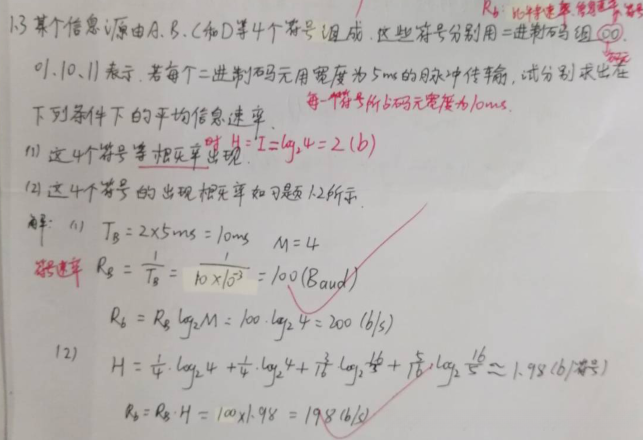 Rb: 比特速率 信息速率
1.3 某个信息源由A.B.C和D等4个符号组成.这些符号分别用二进制码组00.
01.10.11表示.若每个二进制码元用宽度为5ms的脉冲传输,试分别求出在
每一个符号所占码元宽度为10ms.
下列条件下的平均信息速率.
(1) 这4个符号等概率出现 时 H=I=log₂4=2(b)
(2) 这4个符号的出现概率如习题1.2所示.
解: (1) T_B=2×5ms=10ms M=4
符号速率 R_B=1/T_B=1/(10×10⁻³)=100(Baud)
R_b=R_B log₂M=100·log₂4=200(b/s)
(2) H=1/4·log₂4+1/4·log₂4+3/16 log₂16/3+5/16·log₂16/5≈1.98(b/符号)
R_b=R_B·H=100×1.98=198(b/s)